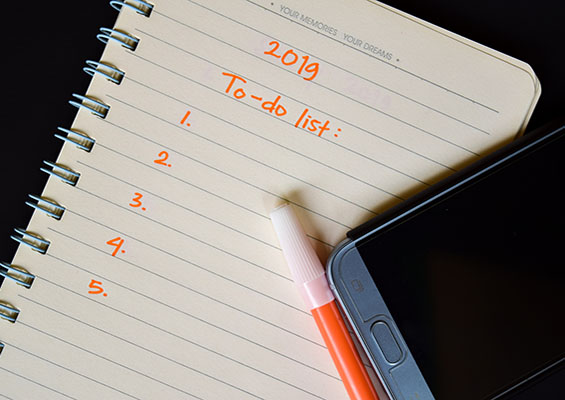 YOUR MEMORIES YOUR DREAMS
2019
To-do list:
1.
2.
3.
4.
5.